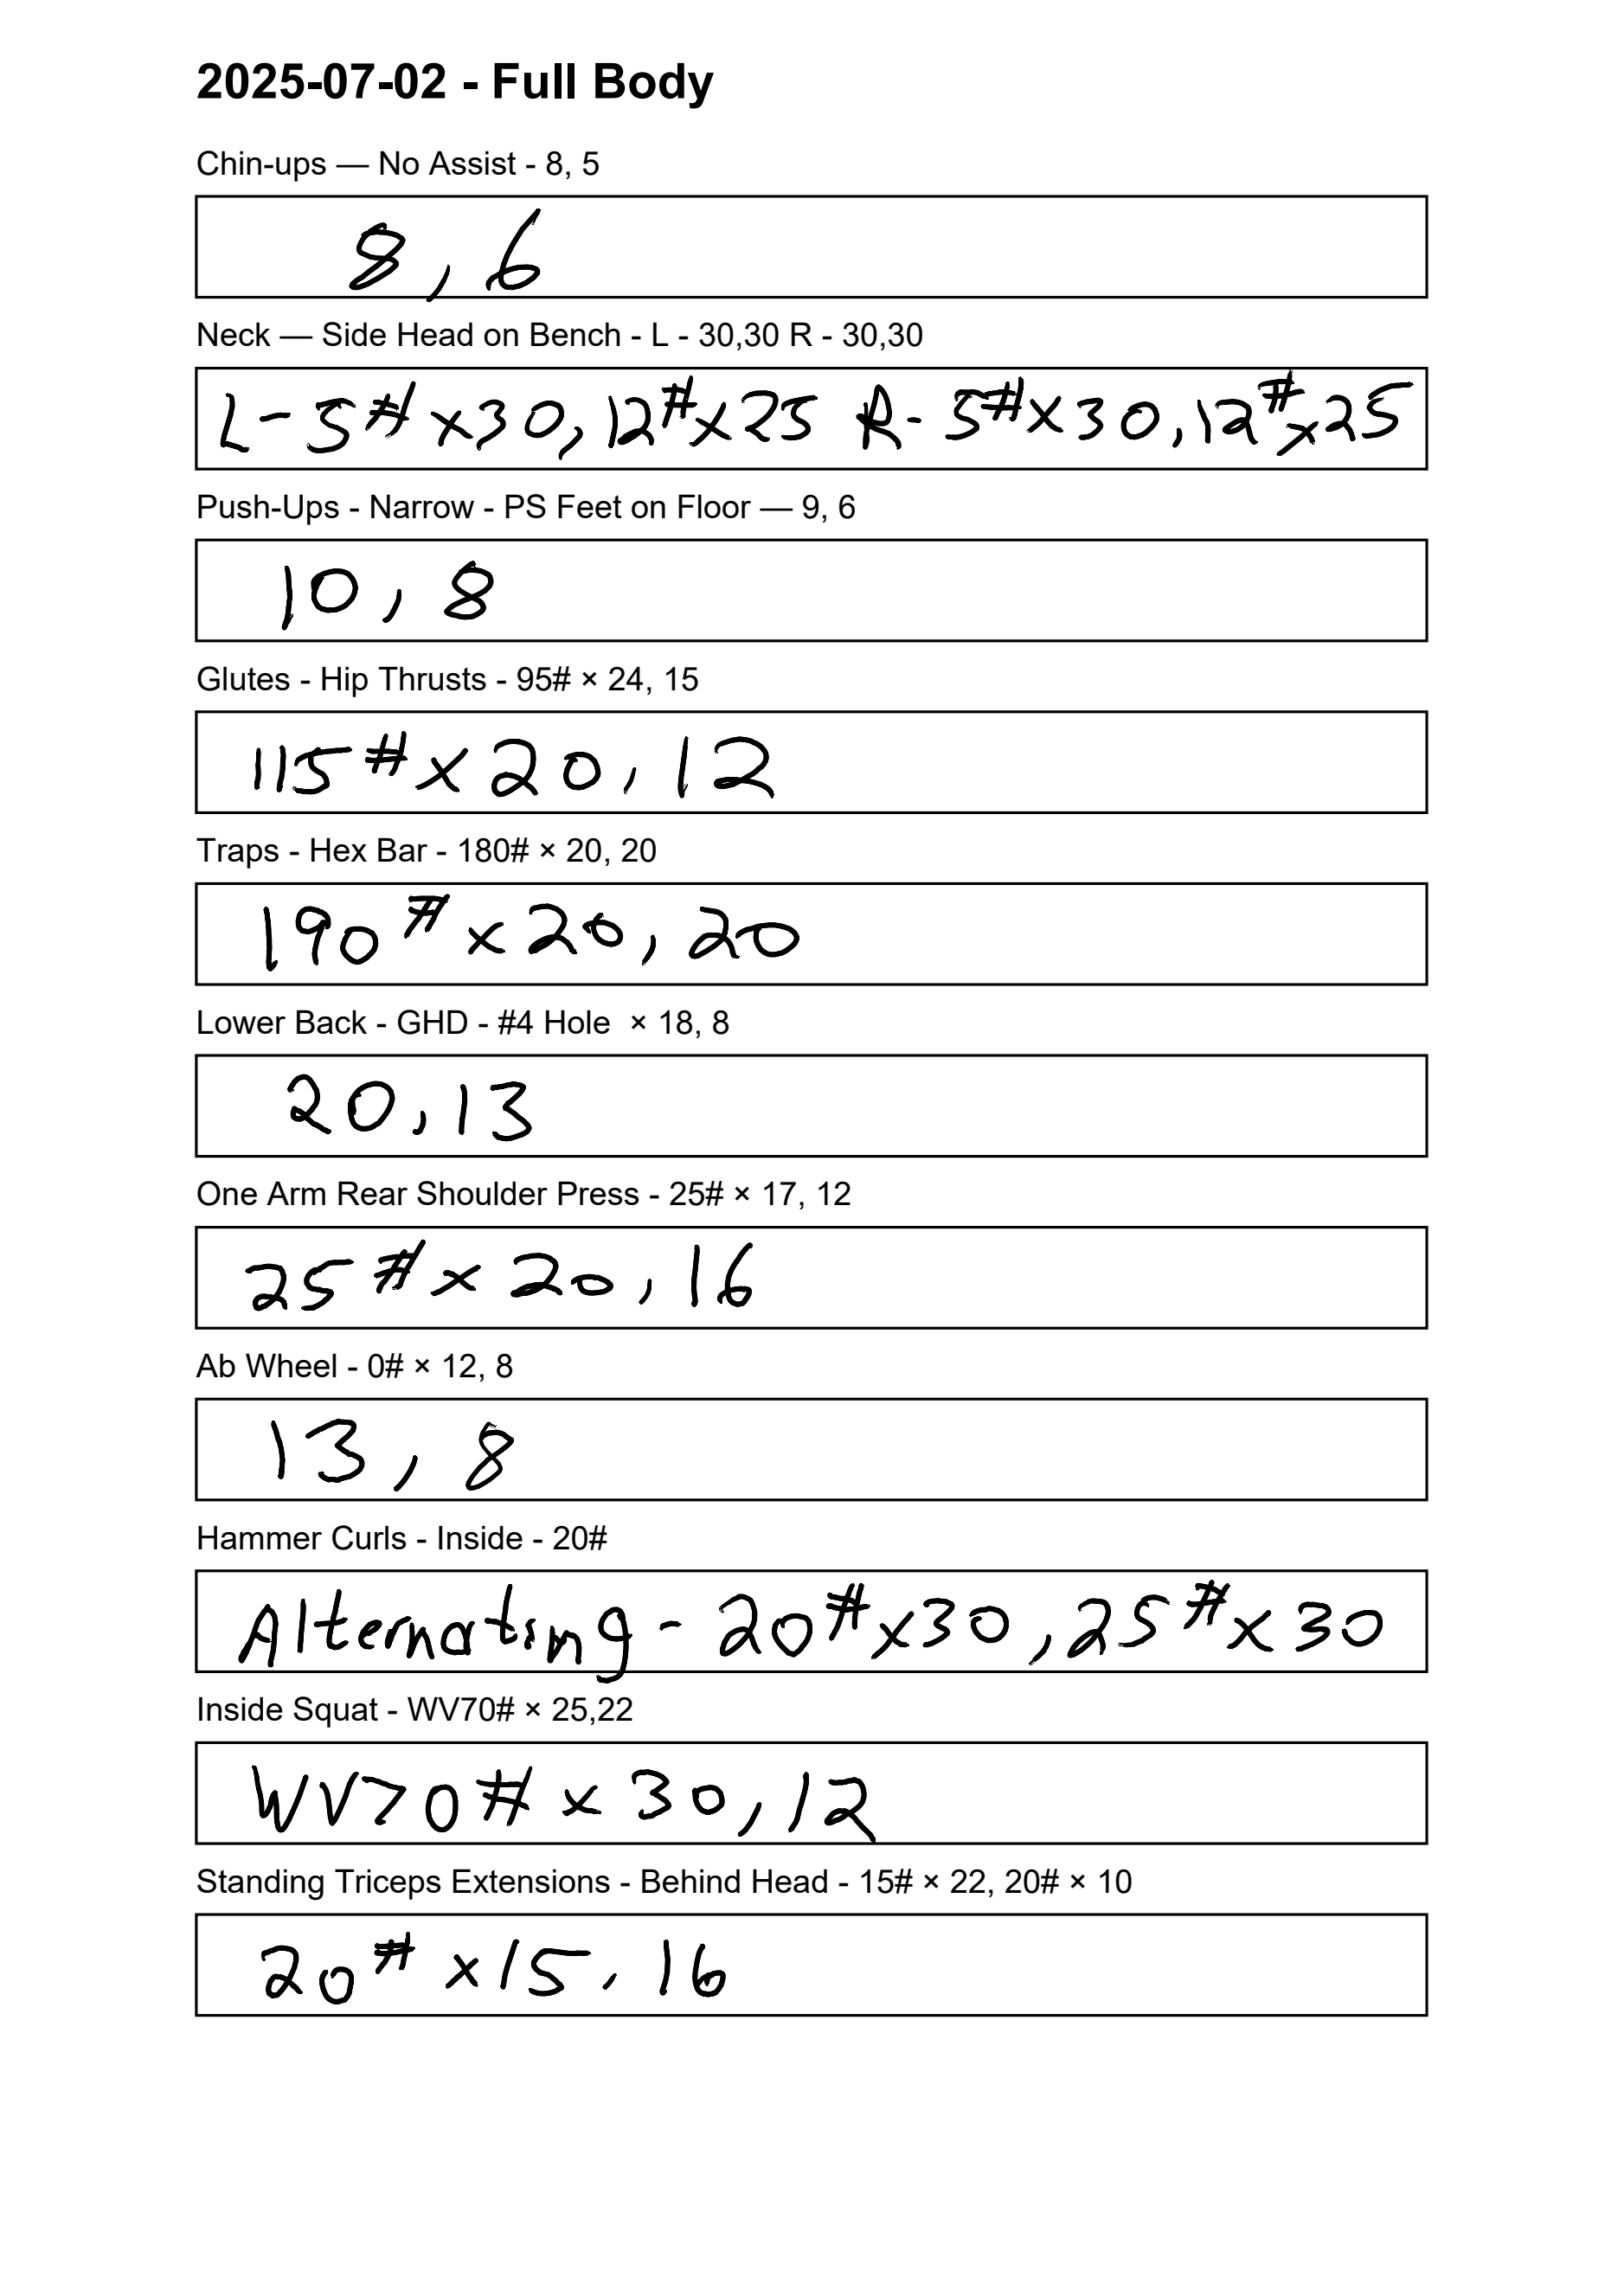 2025-07-02 - Full Body
Chin-ups — No Assist - 8, 5
8, 6
Neck — Side Head on Bench - L - 30,30 R - 30,30
L - 5# x 30, 12# x 25 R - 5# x 30, 12# x 25
Push-Ups - Narrow - PS Feet on Floor — 9, 6
10, 8
Glutes - Hip Thrusts - 95# × 24, 15
115# x 20, 12
Traps - Hex Bar - 180# × 20, 20
190# x 20, 20
Lower Back - GHD - #4 Hole × 18, 8
20, 13
One Arm Rear Shoulder Press - 25# × 17, 12
25# x 20, 16
Ab Wheel - 0# × 12, 8
13, 8
Hammer Curls - Inside - 20#
Alternating - 20# x 30, 25# x 30
Inside Squat - WV70# × 25,22
WV70# x 30, 12
Standing Triceps Extensions - Behind Head - 15# × 22, 20# × 10
20# x 15, 16